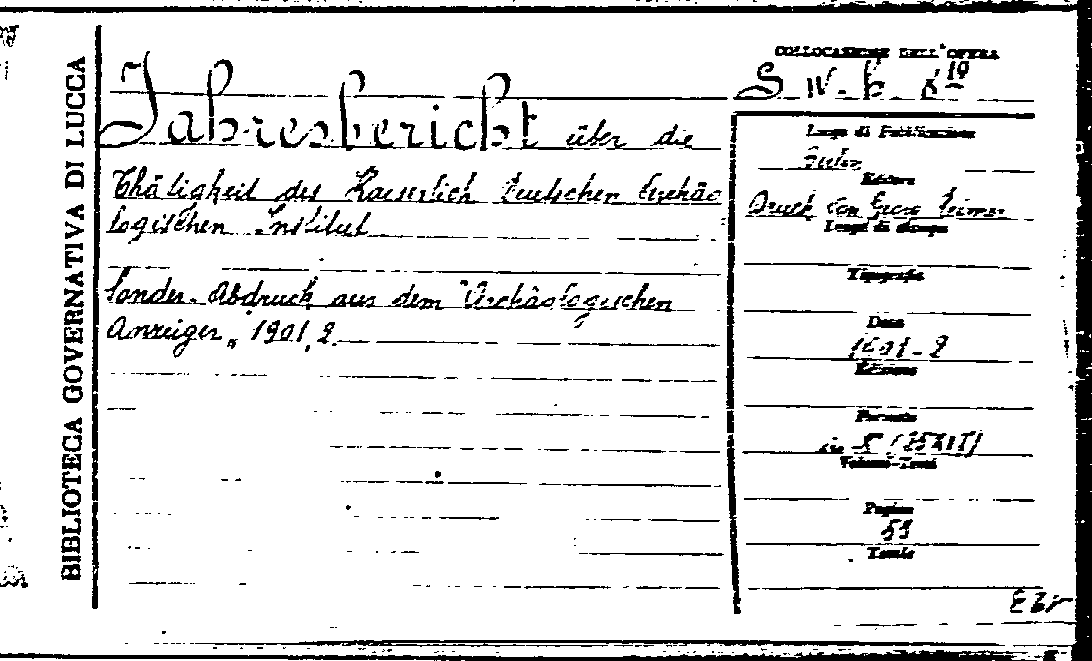 BIBLIOTECA GOVERNATIVA DI LUCCA
Jahresbericht über die
Thätigkeit des Kaiserlich Deutschen Archäo
logischen Institut
Sonder-Abdruck aus dem "Archäologischen
Anzeiger„ 1901, 2.
COLLOCAZIONE DELL'OPERA
S IV. b. 
Luogo di Pubblicazione
Editore
Druck von Georg Reimer
Luogo di stampa
Tipografia
Data
1901-2
Edizione
Formato
in 8°
Volumi-Tomi
Pagine
Tavole